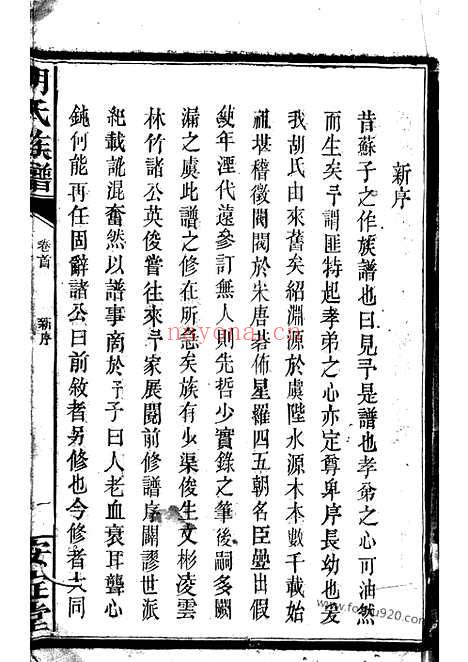 新序
昔蘇子之作族譜也曰見予是譜也孝弟之心可油然
而生矣予謂匪特起孝弟之心亦定尊卑序長幼也爰
我胡氏由來舊矣紹淵源於虞陛水源木本數千載始
祖堪稽徵閥閱於宋唐碁佈星羅四五朝名臣疊出假
使年湮代遠參訂無人則先哲少實錄之筆後嗣多闕
漏之虞此譜之修在所急矣族有少渠俊生文彬凌雲
林竹諸公英俊嘗往來予家展閱前修譜序關謬世派
紀載訛混奮然以譜事商於予予曰人老血衰耳聾心
鈍何能再任固辭諸公曰前敘者另修也今修者大同
胡氏族譜
卷首
新序
一
安定堂
nayona.cn
www.foxtu920.com